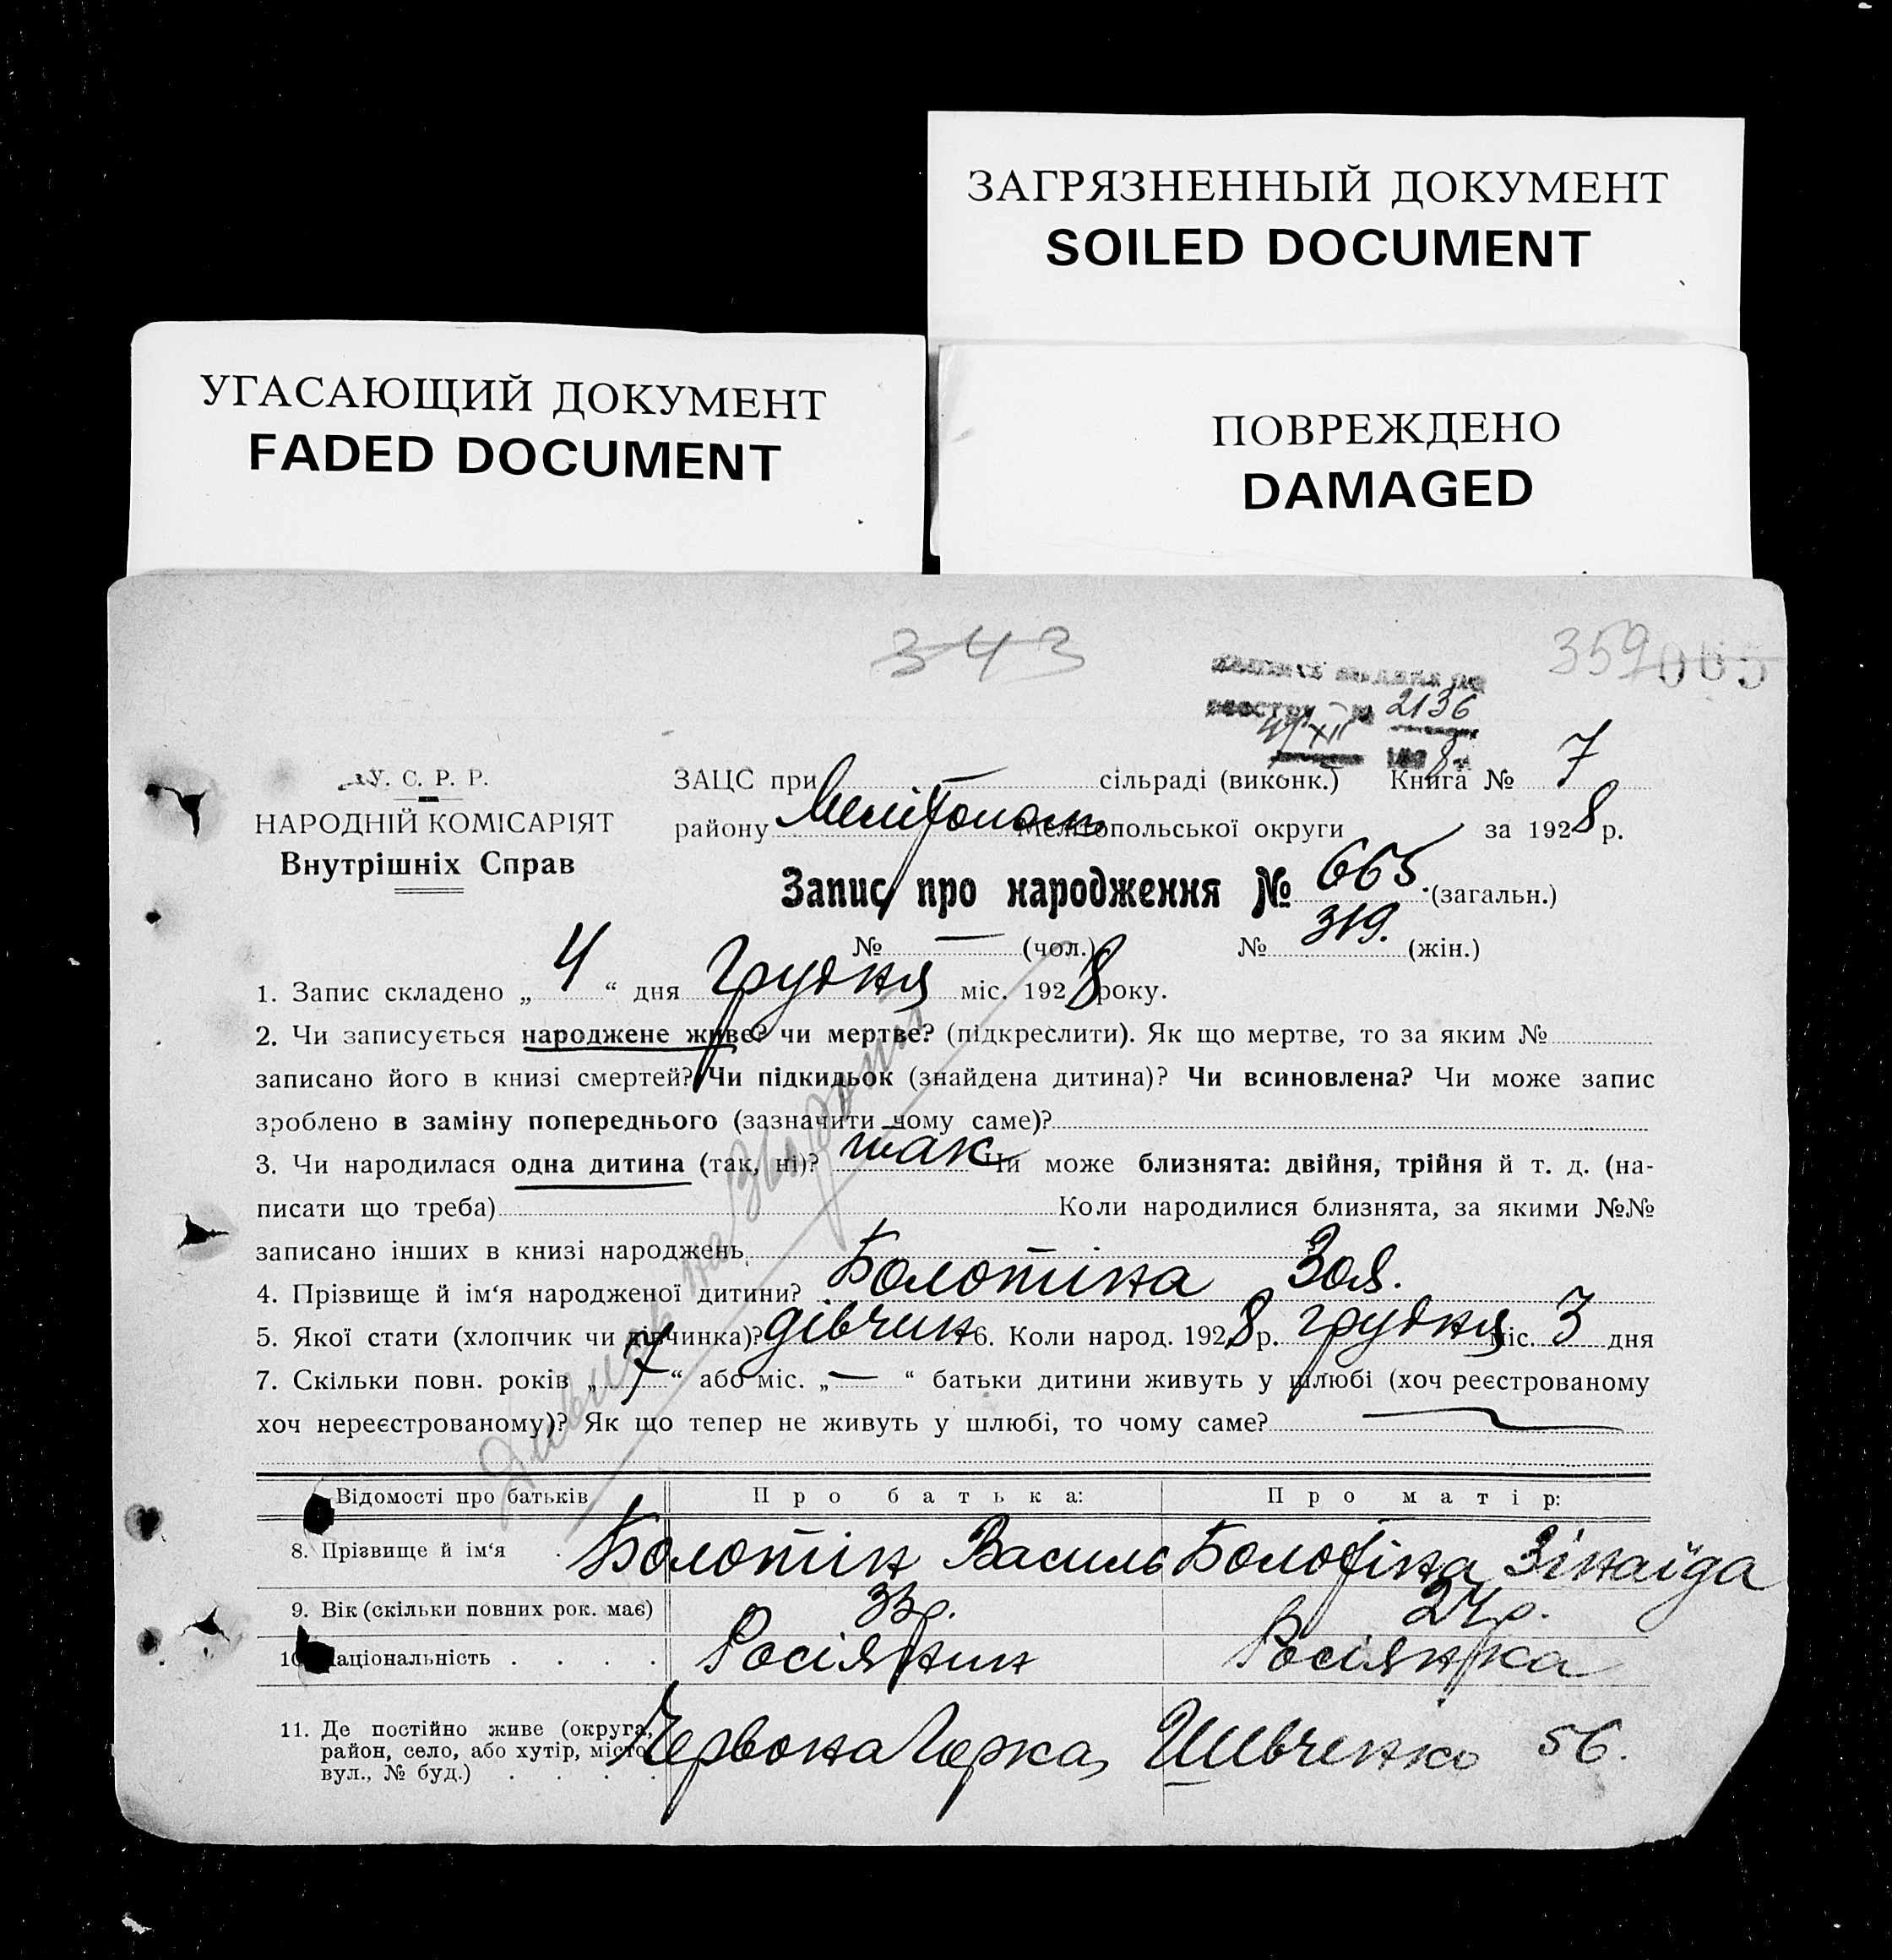 ЗАГРЯЗНЕННЫЙ ДОКУМЕНТ
SOILED DOCUMENT
УГАСАЮЩИЙ ДОКУМЕНТ
FADED DOCUMENT
ПОВРЕЖДЕНО
DAMAGED
343
359
2136
У. С. Р. Р.
НАРОДНІЙ КОМІСАРІЯТ
Внутрішніх Справ
ЗАЦС при — сільраді (виконк.) Книга № 7
району Мелітополь Мелітопольської округи за 1928 р.
Запис про народження № 665 (загальн.)
№ — (чол.) № 319. (жін.)
1. Запис складено „ 4 “ дня Грудня міс. 1928 року.
2. Чи записується народжене живе? чи мертве? (підкреслити). Як що мертве, то за яким №
записано його в книзі смертей? Чи підкидьок (знайдена дитина)? Чи всиновлена? Чи може запис
зроблено в заміну попереднього (зазначити чому саме)?
3. Чи народилася одна дитина (так, ні)? так Чи може близнята: двійня, трійня й т. д. (на-
писати що треба) Коли народилися близнята, за якими №№
записано інших в книзі народжень
4. Прізвище й ім‘я народженої дитини? Болотіна Зоя.
5. Якої стати (хлопчик чи дівчинка)? дівчин 6. Коли народ. 1928 р. грудня міс. 3 дня
7. Скільки повн. років „ 7 “ або міс. „ — “ батьки дитини живуть у шлюбі (хоч реєстрованому
хоч нереєстрованому)? Як що тепер не живуть у шлюбі, то чому саме?
Відомості про батьків Про батька: Про матір:
8. Прізвище й ім‘я Болотін Василь Болотіна Зінаїда
9. Вік (скільки повних рок. має) 33р. 24р.
10. Національність . . . . Росіянин Росіянка
11. Де постійно живе (округа,
район, село, або хутір, місто,
вул., № буд.) . . . . Червона Горка, Шевченко 56.